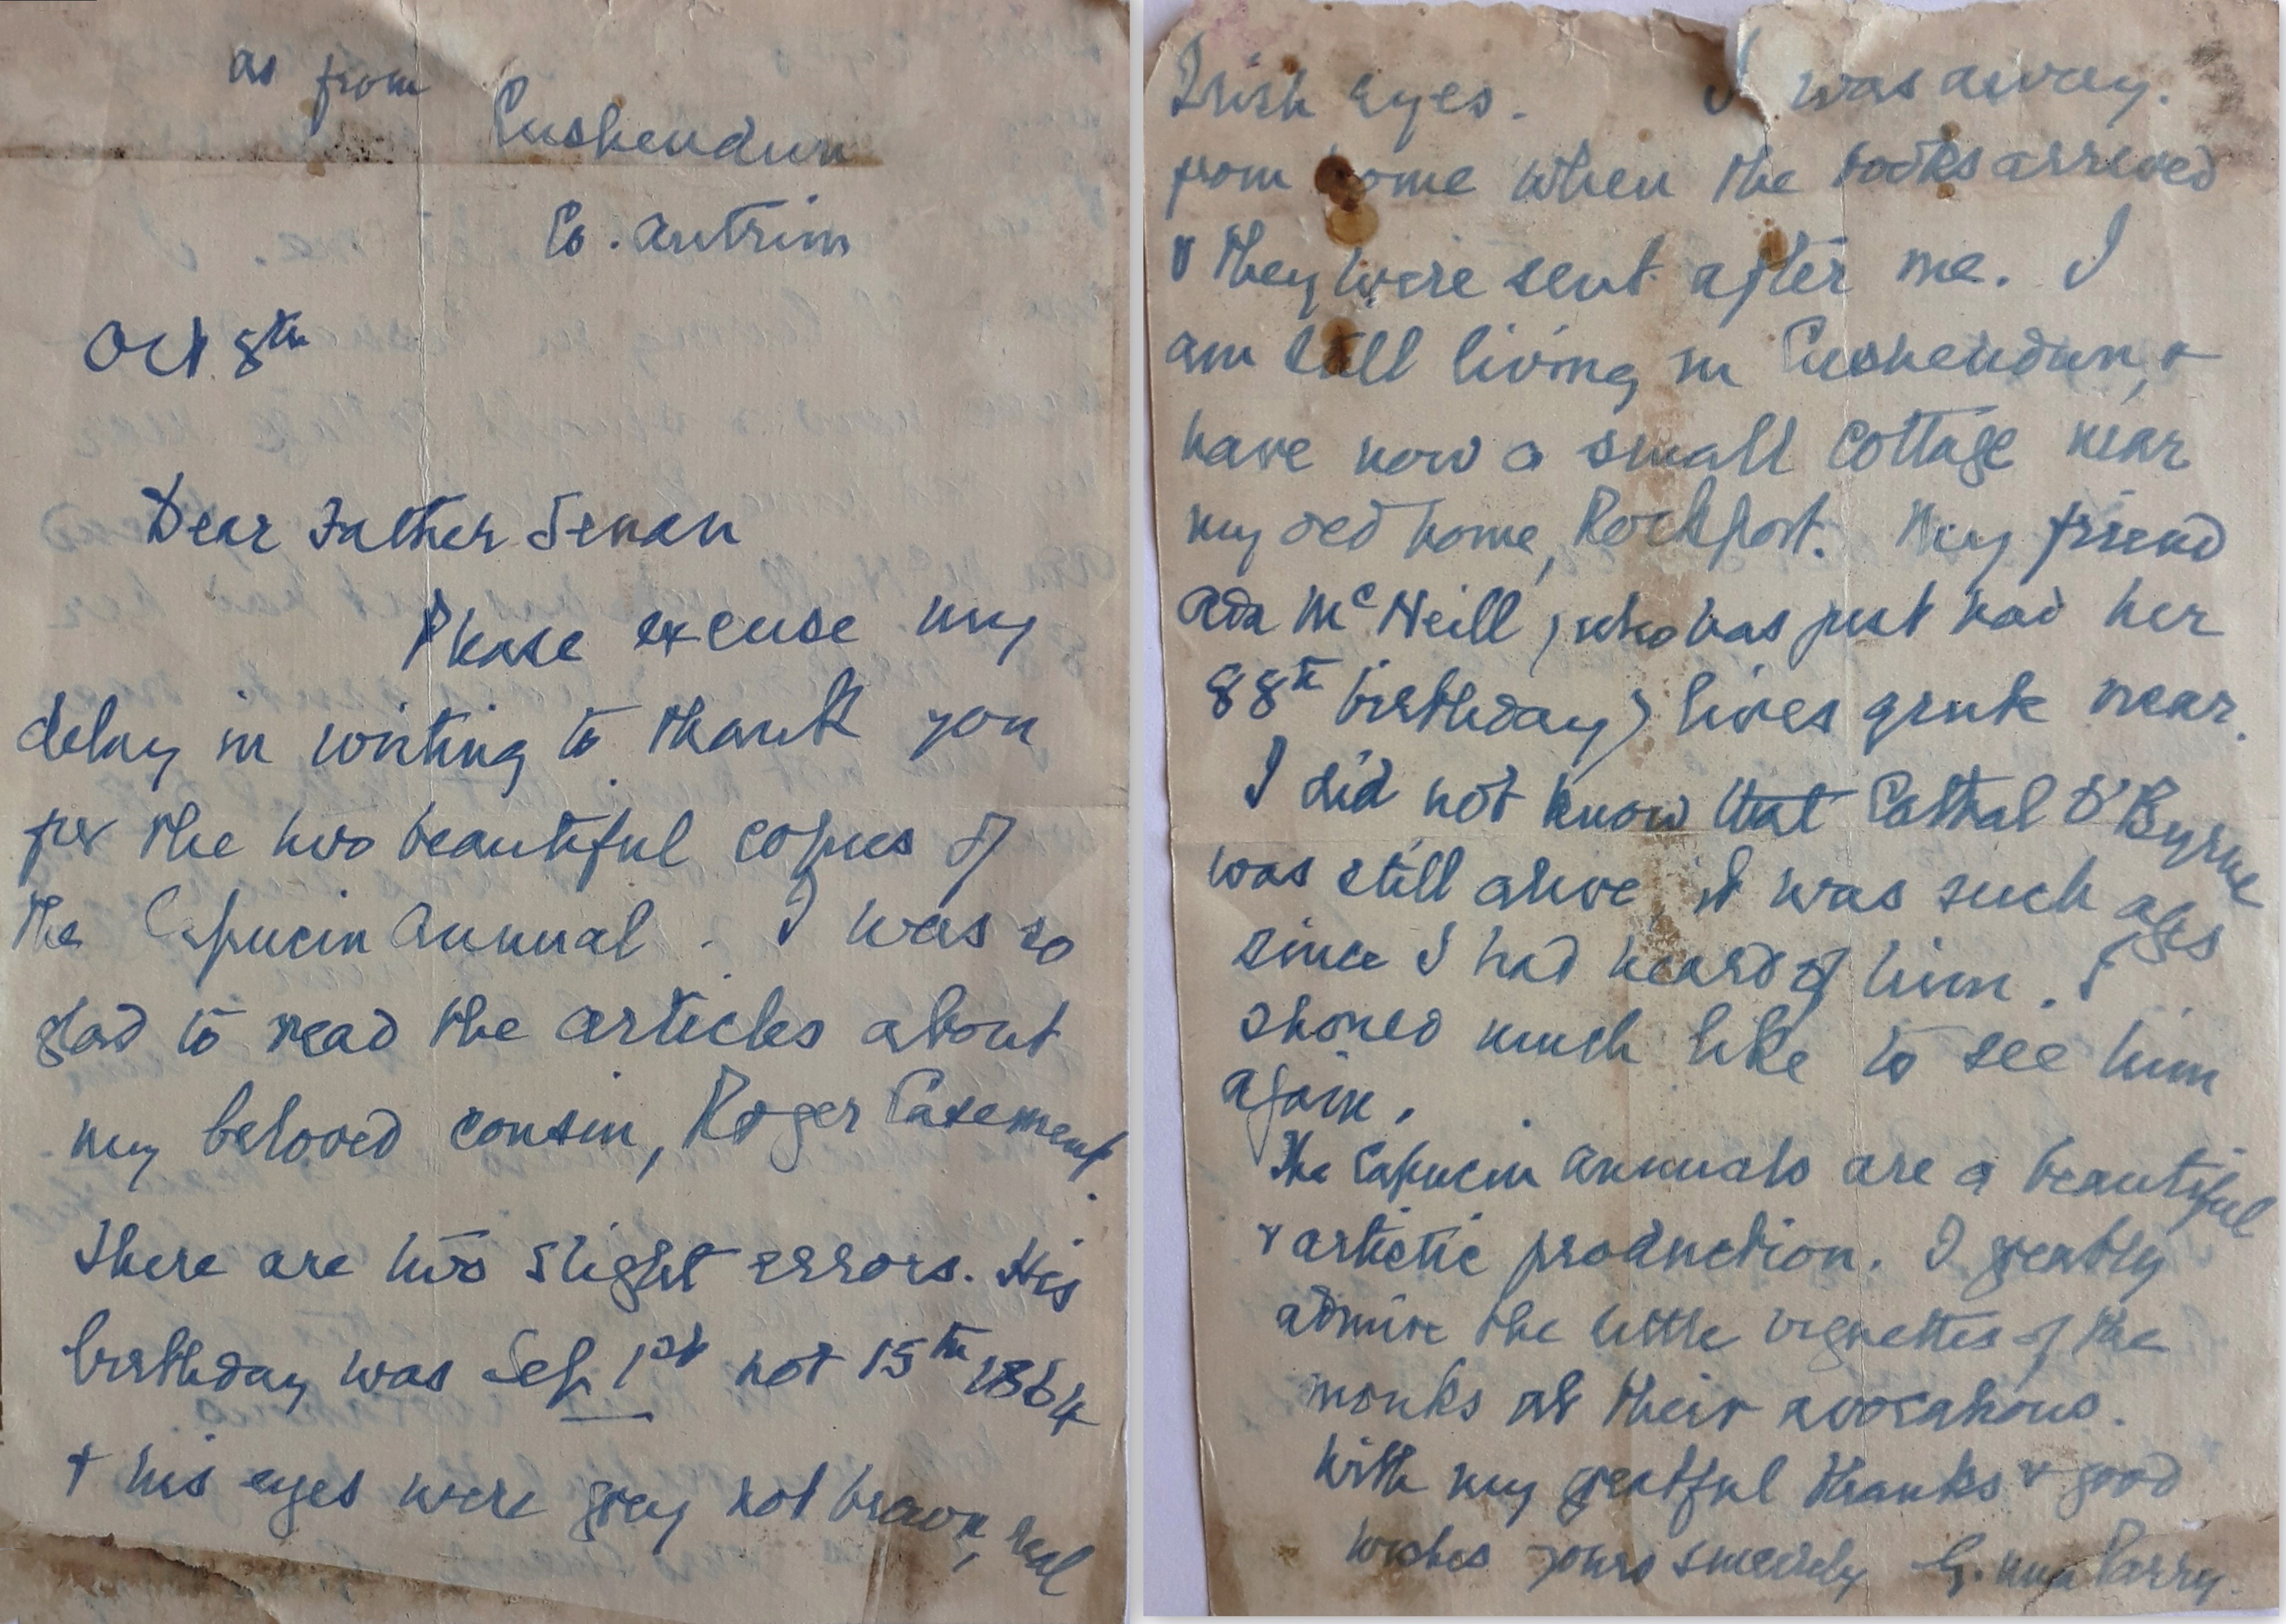 as from
Cushendun
Co. Antrim
Oct 8th
Dear Father Senan
Please excuse my
delay in writing to thank you
for the two beautiful copies of
the Capucin Annual. I was so
glad to read the articles about
my beloved cousin, Roger Casement.
There are two slight errors. His
birthday was Sep 1st not 15th 1864
+ his eyes were grey not brown, real
Irish Eyes. I was away
from home when the books arrived
& they were sent after me. I
am still living in Cushendun, &
have now a small cottage near
my old home, Rockport. My friend
Ada McNeill, (who has just had her
88th birthday) lives quite near.
I did not know that Cathal O'Byrne
was still alive, it was such ages
since I had heard of him. I
should much like to see him
again.
The Capucin Annuals are a beautiful
& artistic production. I greatly
admire the little vignettes of the
monks at their avocations.
With my grateful thanks & good
wishes yours sincerely G. Parry.